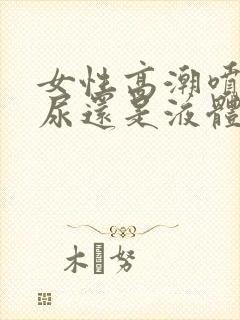 女性高潮噴
尿還是液體
木 努